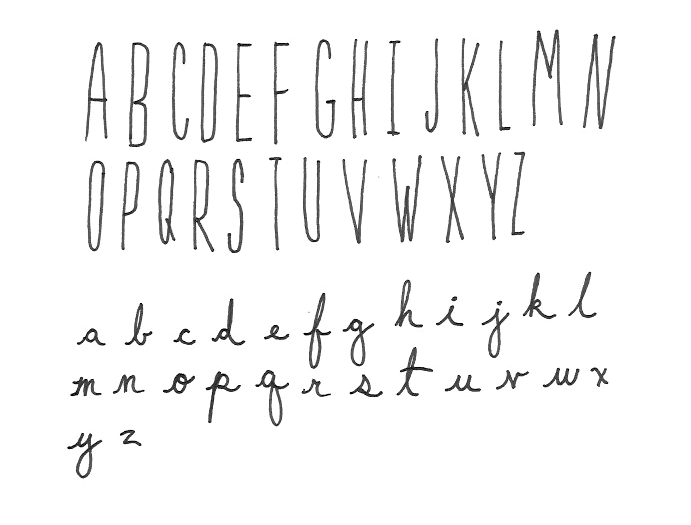 A B C D E F G H I J K L M N
O P Q R S T U V W X Y Z
a b c d e f g h i j k l
m n o p q r s t u v w x
y z